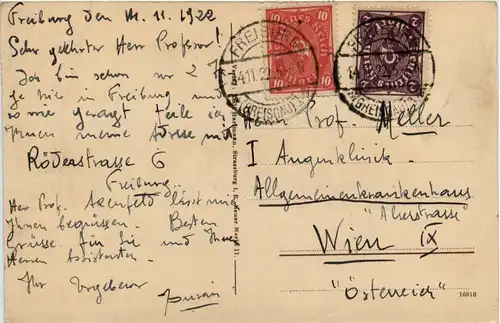 Freiburg den 11.11.1922
Sehr geehrter Herr Professor!
Ich bin schon vor 2
ge hier in Freiburg und
so wie gesagt teile ich
Ihnen meine Adresse mit
Röderstrasse 6
Freiburg
Her Prof. Axenfeld lässt
Ihnen begrüssen. Besten
Grüsse für Sie und Ihre
Herren Assistenten.
Ihr Ergebener
Deutsches Reich
10
10
2
2
FREIBURG
14.11.22
(BREISGAU)
Strassburg i. E., Neuer Markt 11.
Prof. Meller
I Augenklinik
Allgemeinenkrankenhaus
"Alserstrasse"
Wien IX
"Österreich"
16018